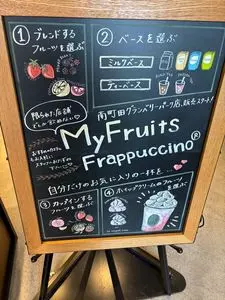 ① ブレンドする
フルーツを選ぶ
② ベースを選ぶ
ミルクベース
ティーベース
限られた店舗
でしか飲めない♡
南町田グランベリーパーク店、販売スタート!
My Fruits
Frappuccino®
自分だけのお気に入りの一杯を
③ カップインする
フルーツを選ぶ
④ ホイップクリームのフルーツ
を選ぶ